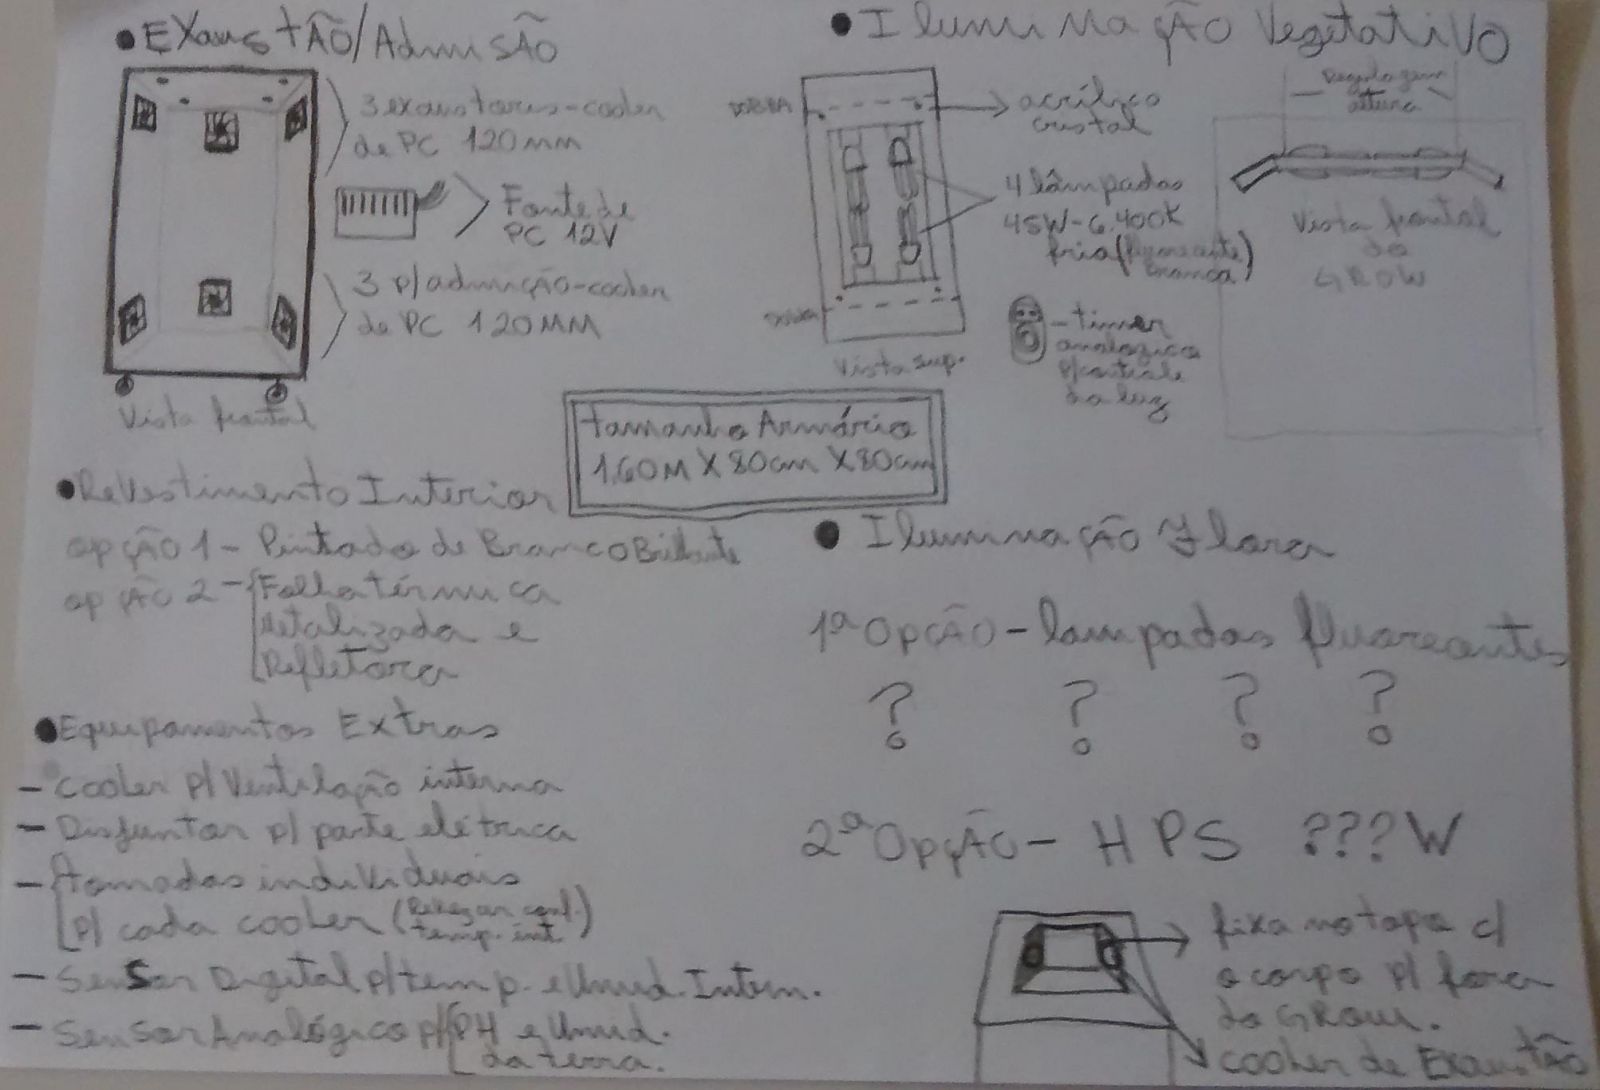 • EXaustÃO/AdmisÃO
3 exaustores-cooler
de PC 120MM
Fonte de
PC 12V
3 p/admição-cooler
de PC 120MM
Vista frontal
• IlumiMaçÃO VegetatiVO
DOBRA
acrílico
cristal
4 lâmpadas
45W-6.400K
fria (fluoreçante
branca)
DOBRA
Vista sup.
-timer
analogico
p/controle
da luz
Regulagem
altura
Vista frontal
do
GROW
tamanho Armário
1,60M X 80cm X 80cm
• Revestimento Interior
opçÃO 1 - Pintado de Branco Brilhante
opçÃO 2 - Folha térmica
Metalizada e
Refletora
• Equipamentos Extras
- Cooler p/ Ventilação interna
- Disjuntor p/ parte elétrica
- tomadas individuais
p/ cada cooler
temp. int.
- Sensor Digital p/temp. e Umid. Intern.
- Sensor Analógico p/ PH e Umid.
da terra.
• IluminaçÃO Flora
1ª OpçÃO - lampadas fluoreçantes
? ? ? ?
2ª OpçÃO - HPS ???W
fixa no topo c/
o corpo p/ fora
do GROW.
cooler de ExaustÃO